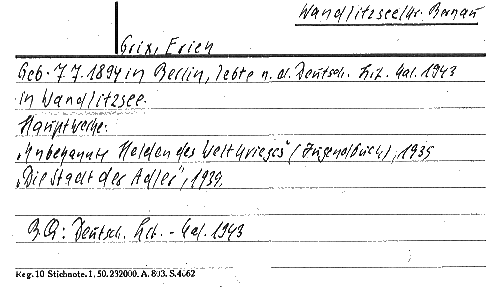 Wandlitzsee/Kr. Bernau
Grix, Erich
Geb. 7.7.1894 in Berlin, lebte n. d. Deutsch. Lit. Kal. 1943
in Wandlitzsee.
Hauptwerke:
"Unbekannte Helden des Weltkrieges" (Jugendbuch), 1935
"Die Stadt der Adler", 1939.
B.Q.: Deutsch. Lit. - Kal. 1943
Reg. 10 Stichnote. 1. 50. 232000. A. 803. S. 4662